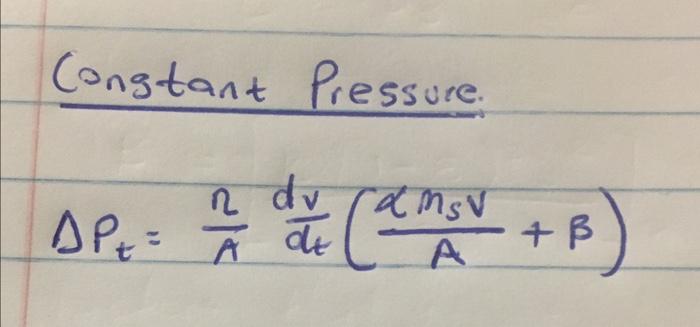 Constant Pressure.
ΔP_t = η/A dv/dt (α m_s v / A + β)